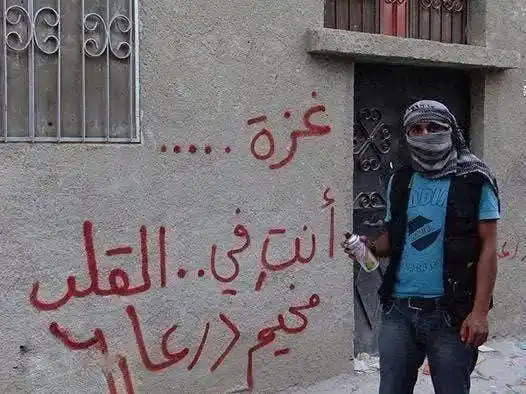 غزة .....
أنتِ في .. القلب
مخيم درعا